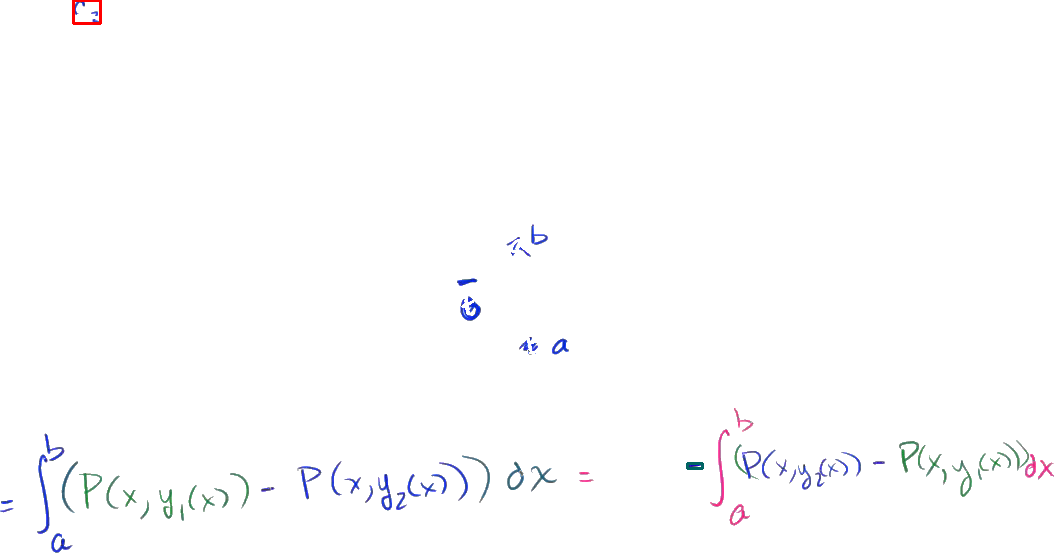 b
a
= ∫_a^b (P(x, y₁(x)) - P(x, y₂(x))) dx = - ∫_a^b (P(x, y₂(x)) - P(x, y₁(x))) dx